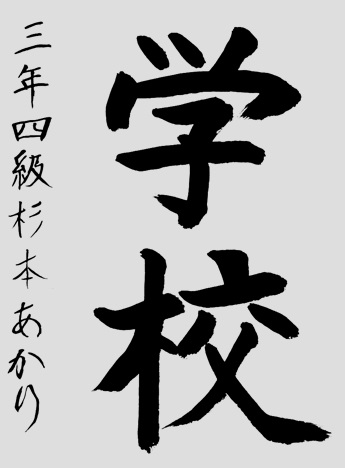 学校
三年四級杉本あかり